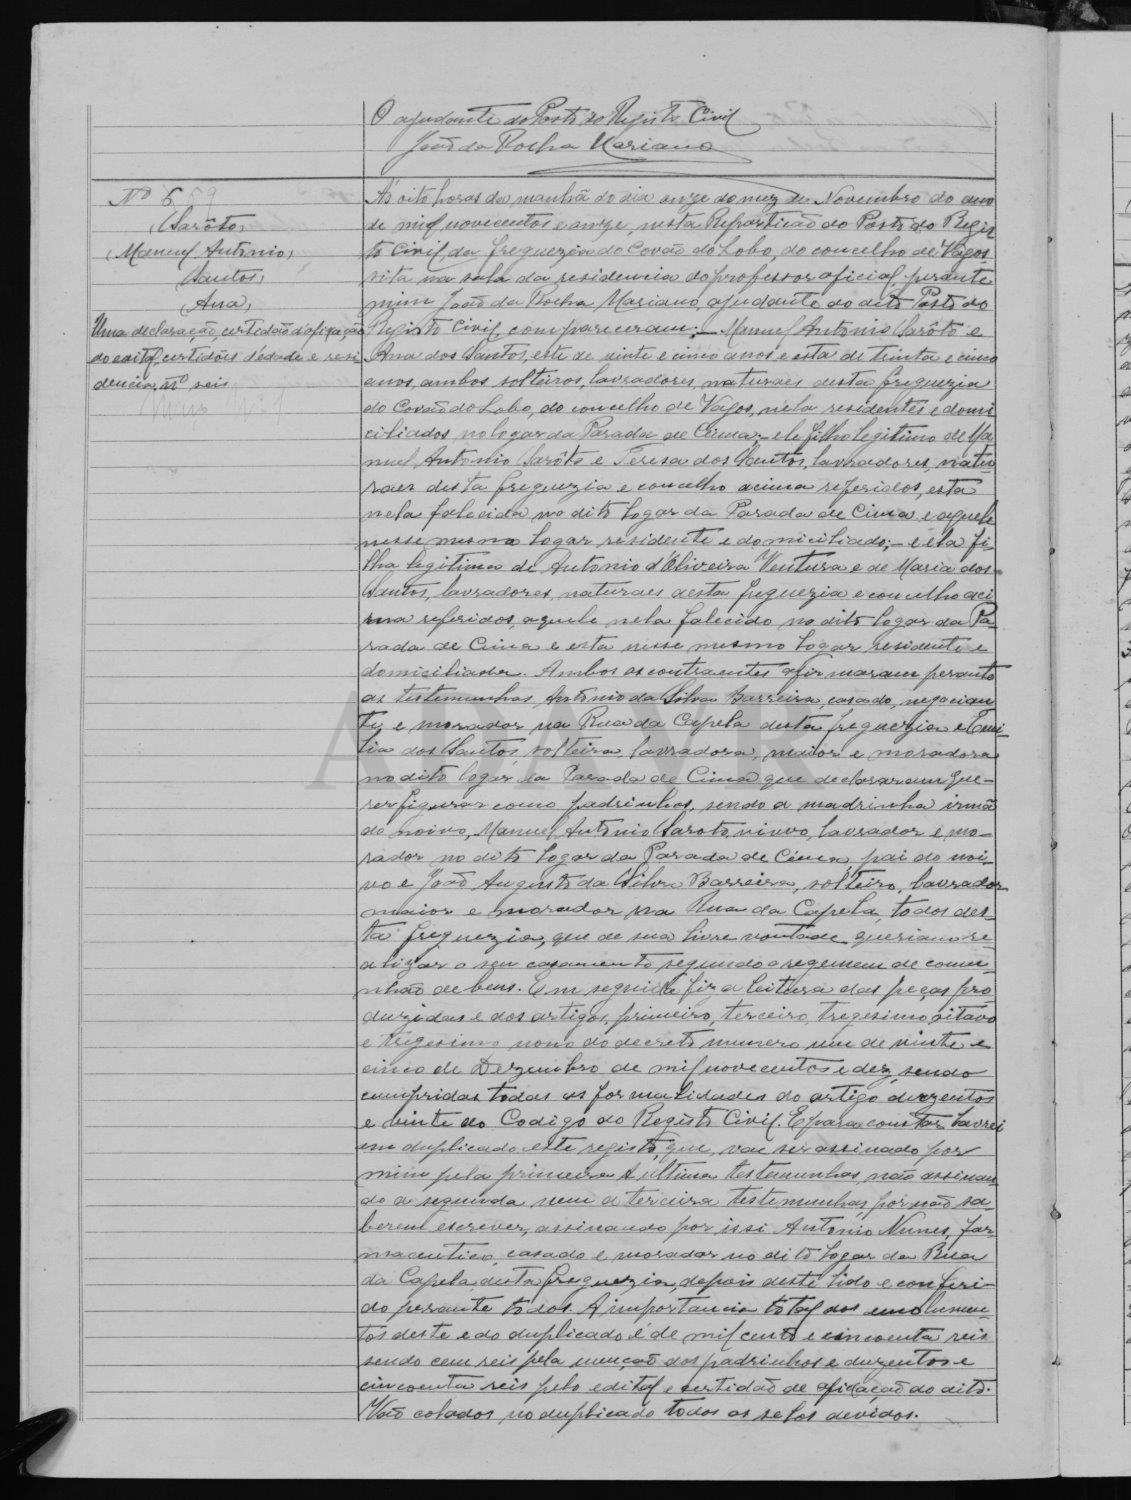 O ajudante do Posto do Registo Civil
João da Rocha Mariano
Nº 6
Sarôto,
Manuel Antonio,
Santos,
Ana,
Uma declaração, certidão d'afixação
do edital, certidões d'edade e resi
dencia, nº seis
A's oito horas da manhã do dia onze do mez de Novembro do ano
de mil novecentos e onze, nesta Repartição do Posto do Regis
to Civil da freguezia do Covão do Lobo, do concelho de Vagos,
sita na sala da residencia do professor oficial, perante
mim João da Rocha Mariano, ajudante do dito Posto do
Registo Civil, compareceram: – Manuel Antonio Sarôto e
Ana dos Santos, este de vinte e cinco anos e esta de trinta e cinco
anos, ambos solteiros, lavradores, naturaes desta freguezia
do Covão do Lobo, do concelho de Vagos, nela residentes e domi
ciliados no logar da Parada de Cima; – ele filho legitimo de Ma
nuel Antonio Sarôto e Teresa dos Santos, lavradores, natu
raes desta freguezia e concelho acima referidos, esta
nela falecida no dito logar da Parada de Cima e aquele
nesse mesmo logar residente e domiciliado; – e ela fi-
lha legitima de Antonio d'Oliveira Ventura e de Maria dos
Santos, lavradores, naturaes desta freguezia e concelho aci
ma referidos, aquele nela falecido no dito logar da Pa-
rada de Cima e esta nesse mesmo logar residente e
domiciliada. Ambos os contraentes afirmaram perante
as testemunhas, Antonio da Silva Barreira, casado, negocian-
te, e morador na Rua da Capela desta freguezia e Emi-
lia dos Santos, solteira, lavradora, maior e moradora
no dito logar da Parada de Cima que declararam que-
rer figurar como padrinhos, sendo a madrinha irmã
do noivo, Manuel Antonio Saroto, viuvo, lavrador e mo-
rador no dito logar da Parada de Cima, pai do noi-
vo e João Augusto da Silva Barreira, solteiro, lavrador
maior e morador na Rua da Capela, todos des-
ta freguezia, que de sua livre vontade queriam re-
alizar o seu casamento segundo o regemem de comu-
nhão de bens. Em seguida fiz a leitura das peças pro
duzidas e dos artigos, primeiro, terceiro, tregesimo oitavo
e trigesimo nono do decreto numero um de vinte e
cinco de Dezembro de mil novecentos e dez, sendo
cumpridas todas as formalidades do artigo duzentos
e vinte do Codigo do Registo Civil. E para constar lavrei
em duplicado este registo, que vae ser assinado por
mim pela primeira e ultima testemunhas, não assinan-
do a segunda nem a terceira testemunhas, por não sa-
berem escrever, assinando por issi Antonio Nunes, far-
maceutico, casado e morador no dito logar da Rua
da Capela, desta freguezia, depois deste lido e conferi-
do perante todos. A importancia total dos emolumen-
tos deste e do duplicado é de mil cento e cincoenta reis
sendo cem reis pela menção dos padrinhos e duzentos e
cincoenta reis pelo edital e certidão de afixação do dito.
Vão colados no duplicado todos os selos devidos.